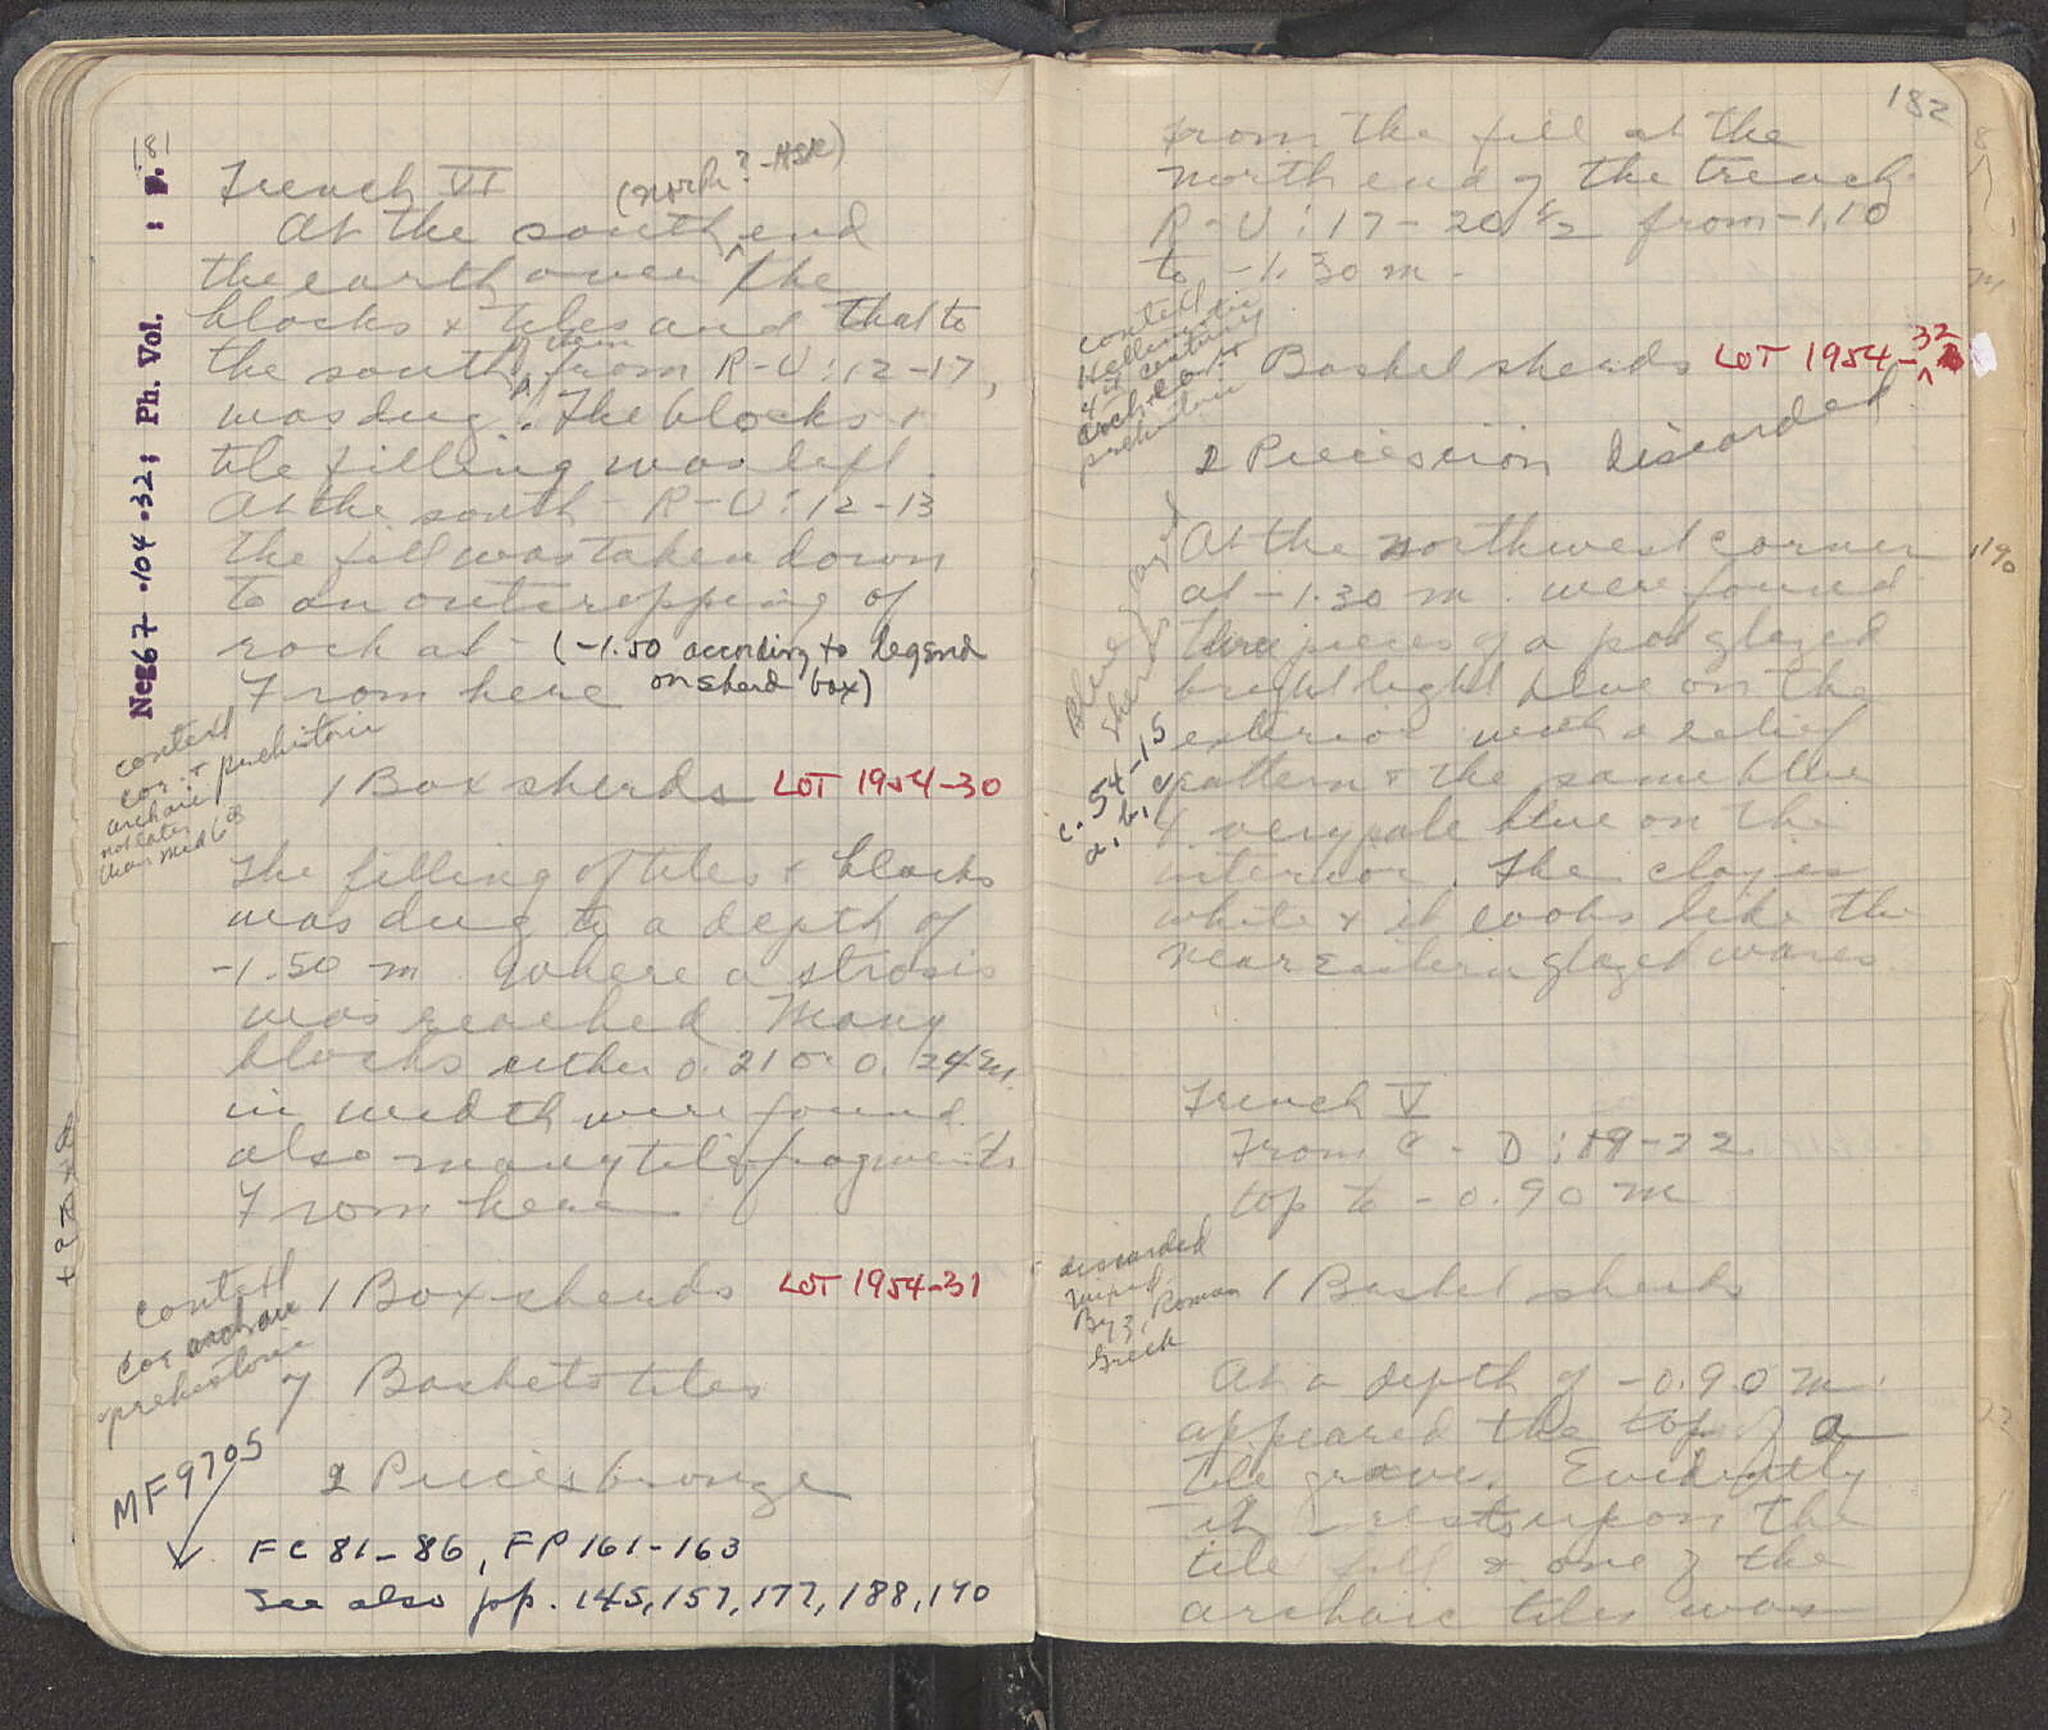 181
Neg 67-104-32; Ph. Vol. : p.
Trench VI
(north? -HSR)
At the south ^ end
the earth over the
blocks & tiles and that to
the south, from R-U:12-17,
was dug. The blocks &
tile filling was left.
At the south - R-U:12-13
the fill was taken down
to an outcropping of
rock at - (-1.50 according to legend
on sherd box)
From here
context
cor. + prehistoric
archaic
not later
than mid 6th
1 Box sherds LOT 1954-30
The filling of tiles & blocks
was dug to a depth of
-1.50 m. where a strosis
was reached. Many
blocks either 0.21 or 0.24 m.
in width were found
also many tile fragments
From here
context
cor archaic
prehistoric
1 Box sherds LOT 1954-31
7 Baskets tiles
MF 9705
2 Pieces bronze
FC 81-86, FP 161-163
See also pp. 145, 157, 177, 188, 190
182
from the fill at the
north end of the trench
R-U:17-20 1/2 from -1.10
to -1.30 m.
context
Hellenistic
4th century
arch. cor. +
prehistoric
Basket sherds LOT 1954-32
2 Pieces iron Discarded
At the northwest corner
at -1.30 m. were found
three pieces of a pot glazed
bright light blue on the
exterior with a relief
pattern & the same blue
& very pale blue on the
interior. The clay is
white & it looks like the
near Eastern glazed wares.
Blue glazed
sherds
C-54-15
a, b, c
Trench V
From C-D:19-22
top to -0.90 m
discarded
mixed
Byz, Roman
Greek
1 Basket sherds
At a depth of -0.90 m.
appeared the top of a
tile grave. Evidently
it rests upon the
tile fill & one of the
archaic tiles was